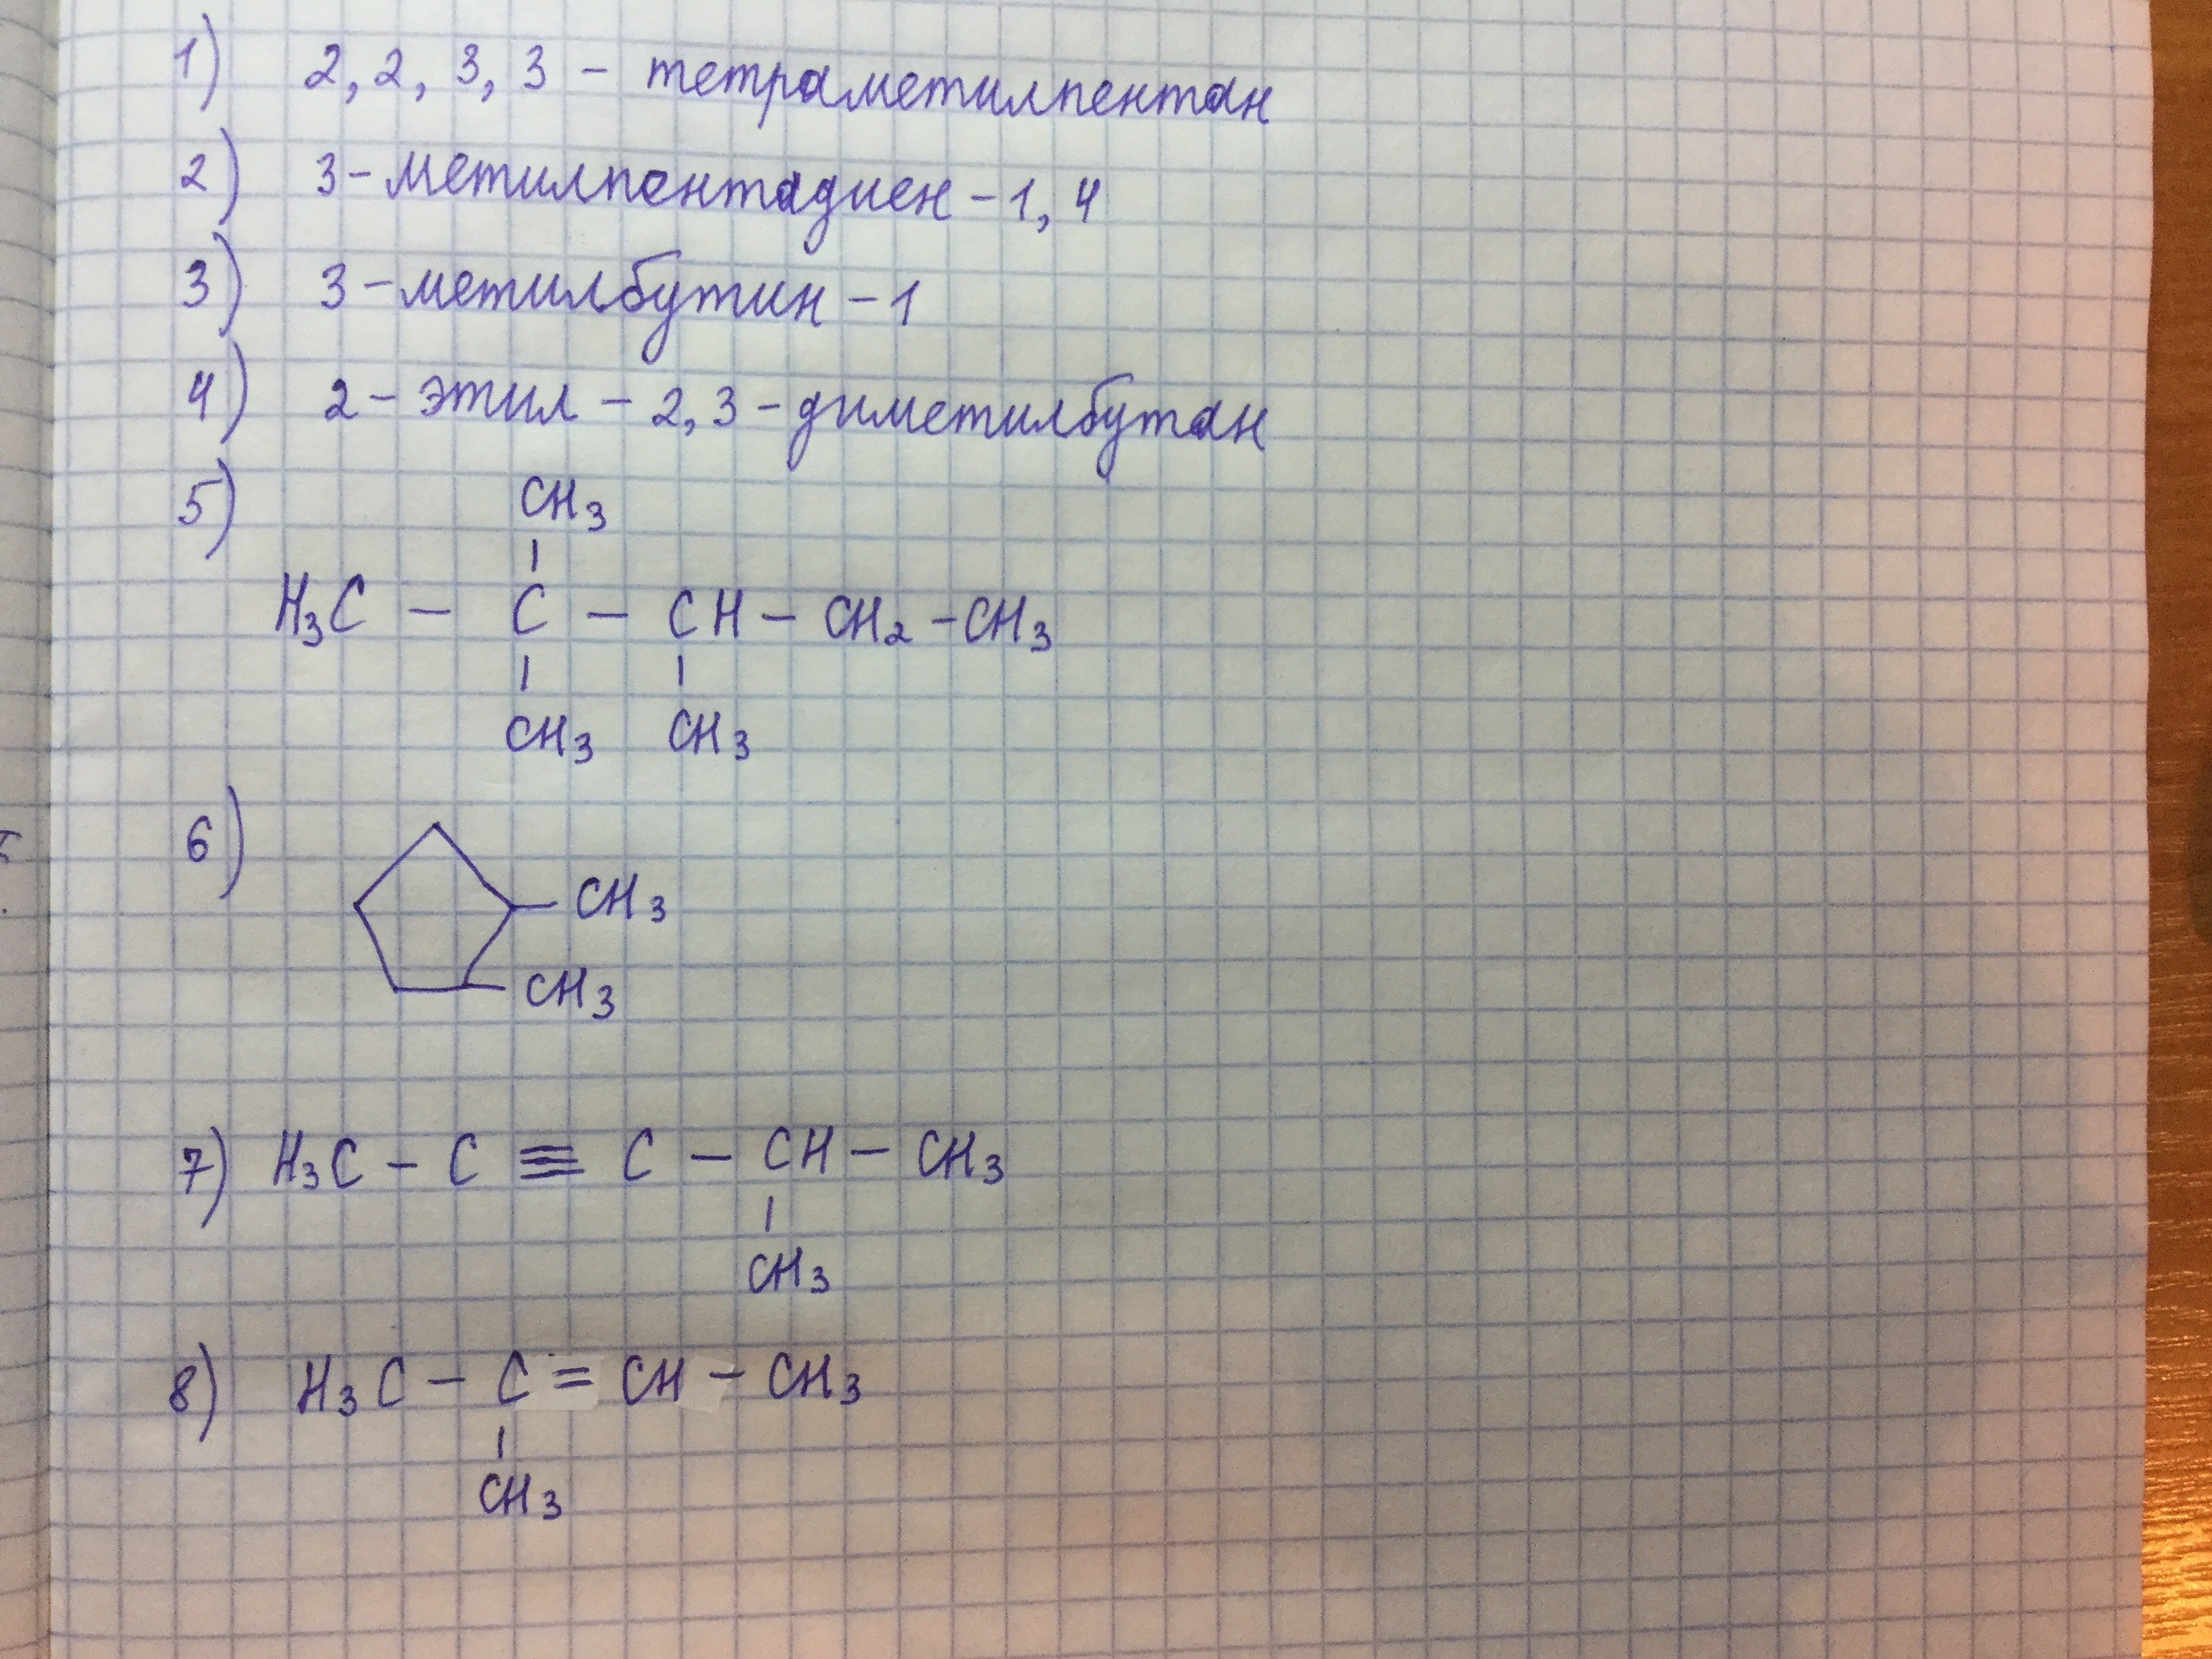 1) 2, 2, 3, 3 - тетраметилпентан
2) 3-метилпентадиен-1, 4
3) 3-метилбутин-1
4) 2-этил-2, 3-диметилбутан
5)
CH3
H3C - C - CH - CH2 - CH3
CH3 CH3
6)
CH3
CH3
7) H3C - C ≡ C - CH - CH3
CH3
8) H3C - C = CH - CH3
CH3